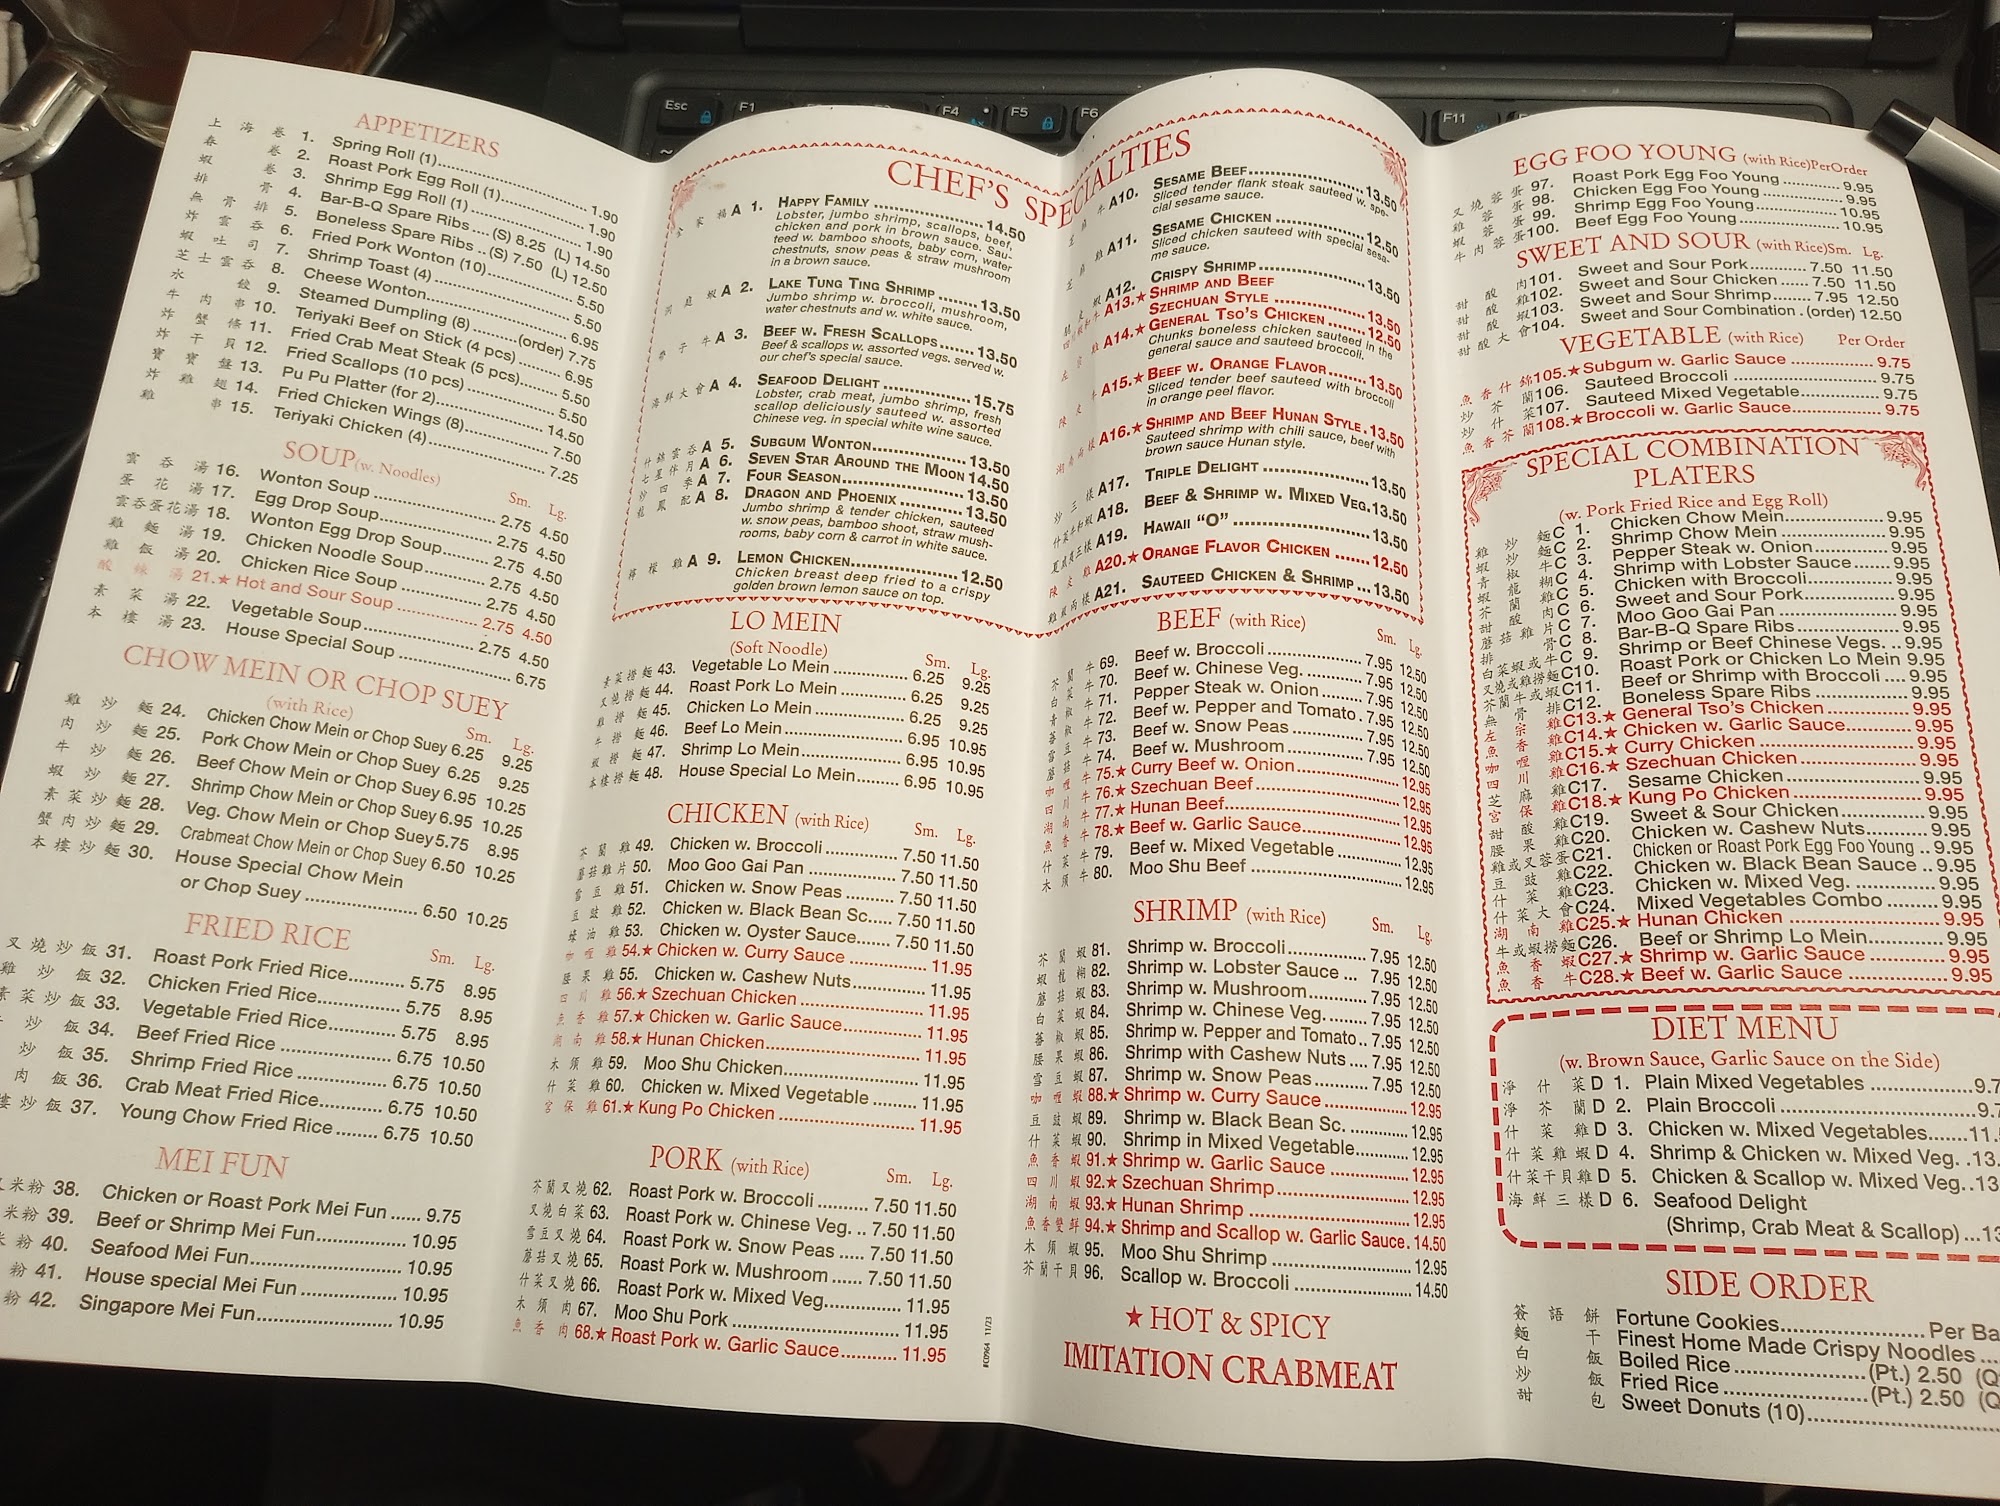 Esc
F1
F4
F5
F6
F11
APPETIZERS
上海卷 1. Spring Roll (1) 1.90
春卷 2. Roast Pork Egg Roll (1) 1.90
蝦卷 3. Shrimp Egg Roll (1) 1.90
排骨 4. Bar-B-Q Spare Ribs (S) 8.25 (L) 14.50
無骨排 5. Boneless Spare Ribs (S) 7.50 (L) 12.50
炸雲吞 6. Fried Pork Wonton (10) 5.50
蝦吐司 7. Shrimp Toast (4) 5.50
芝士雲吞 8. Cheese Wonton 6.95
水餃 9. Steamed Dumpling (8) (order) 7.75
牛肉串 10. Teriyaki Beef on Stick (4 pcs) 6.95
炸蟹條 11. Fried Crab Meat Steak (5 pcs) 5.50
炸干貝 12. Fried Scallops (10 pcs) 5.50
寶寶盤 13. Pu Pu Platter (for 2) 14.50
炸雞翅 14. Fried Chicken Wings (8) 7.50
雞串 15. Teriyaki Chicken (4) 7.25
SOUP (w. Noodles) Sm. Lg.
雲吞湯 16. Wonton Soup 2.75 4.50
蛋花湯 17. Egg Drop Soup 2.75 4.50
雲吞蛋花湯 18. Wonton Egg Drop Soup 2.75 4.50
雞麵湯 19. Chicken Noodle Soup 2.75 4.50
雞飯湯 20. Chicken Rice Soup 2.75 4.50
酸辣湯 21.★ Hot and Sour Soup 2.75 4.50
素菜湯 22. Vegetable Soup 2.75 4.50
本樓湯 23. House Special Soup 6.75
CHOW MEIN OR CHOP SUEY
(with Rice) Sm. Lg.
雞炒麵 24. Chicken Chow Mein or Chop Suey 6.25 9.25
肉炒麵 25. Pork Chow Mein or Chop Suey 6.25 9.25
牛炒麵 26. Beef Chow Mein or Chop Suey 6.95 10.25
蝦炒麵 27. Shrimp Chow Mein or Chop Suey 6.95 10.25
素菜炒麵 28. Veg. Chow Mein or Chop Suey 5.75 8.95
蟹肉炒麵 29. Crabmeat Chow Mein or Chop Suey 6.50 10.25
本樓炒麵 30. House Special Chow Mein
or Chop Suey 6.50 10.25
FRIED RICE Sm. Lg.
叉燒炒飯 31. Roast Pork Fried Rice 5.75 8.95
雞炒飯 32. Chicken Fried Rice 5.75 8.95
素菜炒飯 33. Vegetable Fried Rice 5.75 8.95
炒飯 34. Beef Fried Rice 6.75 10.50
炒飯 35. Shrimp Fried Rice 6.75 10.50
肉飯 36. Crab Meat Fried Rice 6.75 10.50
樓炒飯 37. Young Chow Fried Rice 6.75 10.50
MEI FUN
米粉 38. Chicken or Roast Pork Mei Fun 9.75
米粉 39. Beef or Shrimp Mei Fun 10.95
米粉 40. Seafood Mei Fun 10.95
粉 41. House special Mei Fun 10.95
粉 42. Singapore Mei Fun 10.95
CHEF'S SPECIALTIES
全家福 A 1. HAPPY FAMILY 14.50
Lobster, jumbo shrimp, scallops, beef,
chicken and pork in brown sauce. Sau-
teed w. bamboo shoots, baby corn, water
chestnuts, snow peas & straw mushroom
in a brown sauce.
洞庭蝦 A 2. LAKE TUNG TING SHRIMP 13.50
Jumbo shrimp w. broccoli, mushroom,
water chestnuts and w. white sauce.
帶子牛 A 3. BEEF W. FRESH SCALLOPS 13.50
Beef & scallops w. assorted vegs. served w.
our chef's special sauce.
海鮮大會 A 4. SEAFOOD DELIGHT 15.75
Lobster, crab meat, jumbo shrimp, fresh
scallop deliciously sauteed w. assorted
Chinese veg. in special white wine sauce.
什錦雲吞 A 5. SUBGUM WONTON 13.50
七星伴月 A 6. SEVEN STAR AROUND THE MOON 14.50
炒四季 A 7. FOUR SEASON 13.50
龍鳳配 A 8. DRAGON AND PHOENIX 13.50
Jumbo shrimp & tender chicken, sauteed
w. snow peas, bamboo shoot, straw mush-
rooms, baby corn & carrot in white sauce.
檸檬雞 A 9. LEMON CHICKEN 12.50
Chicken breast deep fried to a crispy
golden brown lemon sauce on top.
牛 A10. SESAME BEEF 13.50
Sliced tender flank steak sauteed w. spe-
cial sesame sauce.
雞 A11. SESAME CHICKEN 12.50
Sliced chicken sauteed with special sesa-
me sauce.
蝦 A12. CRISPY SHRIMP 13.50
四川蝦和牛 A13.★ SHRIMP AND BEEF
SZECHUAN STYLE 13.50
左宗雞 A14.★ GENERAL TSO'S CHICKEN 12.50
Chunks boneless chicken sauteed in the
general sauce and sauteed broccoli.
陳皮牛 A15.★ BEEF W. ORANGE FLAVOR 13.50
Sliced tender beef sauteed with broccoli
in orange peel flavor.
湖南兩樣 A16.★ SHRIMP AND BEEF HUNAN STYLE 13.50
Sauteed shrimp with chili sauce, beef with
brown sauce Hunan style.
炒三樣 A17. TRIPLE DELIGHT 13.50
什菜牛和蝦 A18. BEEF & SHRIMP W. MIXED VEG. 13.50
夏威夷三樣 A19. HAWAII “O” 13.50
陳皮雞 A20.★ ORANGE FLAVOR CHICKEN 12.50
雞蝦兩樣 A21. SAUTEED CHICKEN & SHRIMP 13.50
LO MEIN
(Soft Noodle) Sm. Lg.
素菜撈麵 43. Vegetable Lo Mein 6.25 9.25
叉燒撈麵 44. Roast Pork Lo Mein 6.25 9.25
雞撈麵 45. Chicken Lo Mein 6.25 9.25
牛撈麵 46. Beef Lo Mein 6.95 10.95
蝦撈麵 47. Shrimp Lo Mein 6.95 10.95
本樓撈麵 48. House Special Lo Mein 6.95 10.95
CHICKEN (with Rice) Sm. Lg.
芥蘭雞 49. Chicken w. Broccoli 7.50 11.50
蘑菇雞片 50. Moo Goo Gai Pan 7.50 11.50
雪豆雞 51. Chicken w. Snow Peas 7.50 11.50
豆豉雞 52. Chicken w. Black Bean Sc. 7.50 11.50
蠔油雞 53. Chicken w. Oyster Sauce 7.50 11.50
咖喱雞 54.★ Chicken w. Curry Sauce 11.95
腰果雞 55. Chicken w. Cashew Nuts 11.95
四川雞 56.★ Szechuan Chicken 11.95
魚香雞 57.★ Chicken w. Garlic Sauce 11.95
湖南雞 58.★ Hunan Chicken 11.95
木須雞 59. Moo Shu Chicken 11.95
什菜雞 60. Chicken w. Mixed Vegetable 11.95
宮保雞 61.★ Kung Po Chicken 11.95
PORK (with Rice) Sm. Lg.
芥蘭叉燒 62. Roast Pork w. Broccoli 7.50 11.50
叉燒白菜 63. Roast Pork w. Chinese Veg. 7.50 11.50
雪豆叉燒 64. Roast Pork w. Snow Peas 7.50 11.50
蘑菇叉燒 65. Roast Pork w. Mushroom 7.50 11.50
什菜叉燒 66. Roast Pork w. Mixed Veg. 11.95
木須肉 67. Moo Shu Pork 11.95
魚香肉 68.★ Roast Pork w. Garlic Sauce 11.95
11/23
BEEF (with Rice) Sm. Lg.
芥蘭牛 69. Beef w. Broccoli 7.95 12.50
白菜牛 70. Beef w. Chinese Veg. 7.95 12.50
青椒牛 71. Pepper Steak w. Onion 7.95 12.50
蕃椒牛 72. Beef w. Pepper and Tomato 7.95 12.50
雪豆牛 73. Beef w. Snow Peas 7.95 12.50
蘑菇牛 74. Beef w. Mushroom 7.95 12.50
咖喱牛 75.★ Curry Beef w. Onion 12.95
四川牛 76.★ Szechuan Beef 12.95
湖南牛 77.★ Hunan Beef 12.95
魚香牛 78.★ Beef w. Garlic Sauce 12.95
什菜牛 79. Beef w. Mixed Vegetable 12.95
木須牛 80. Moo Shu Beef 12.95
SHRIMP (with Rice) Sm. Lg.
芥蘭蝦 81. Shrimp w. Broccoli 7.95 12.50
蝦龍糊 82. Shrimp w. Lobster Sauce 7.95 12.50
蘑菇蝦 83. Shrimp w. Mushroom 7.95 12.50
白菜蝦 84. Shrimp w. Chinese Veg. 7.95 12.50
蕃椒蝦 85. Shrimp w. Pepper and Tomato 7.95 12.50
腰果蝦 86. Shrimp with Cashew Nuts 7.95 12.50
雪豆蝦 87. Shrimp w. Snow Peas 7.95 12.50
咖喱蝦 88.★ Shrimp w. Curry Sauce 12.95
豆豉蝦 89. Shrimp w. Black Bean Sc. 12.95
什菜蝦 90. Shrimp in Mixed Vegetable 12.95
魚香蝦 91.★ Shrimp w. Garlic Sauce 12.95
四川蝦 92.★ Szechuan Shrimp 12.95
湖南蝦 93.★ Hunan Shrimp 12.95
魚香雙鮮 94.★ Shrimp and Scallop w. Garlic Sauce 14.50
木須蝦 95. Moo Shu Shrimp 12.95
芥蘭干貝 96. Scallop w. Broccoli 14.50
★ HOT & SPICY
IMITATION CRABMEAT
EGG FOO YOUNG (with Rice) Per Order
叉燒蓉蛋 97. Roast Pork Egg Foo Young 9.95
雞蓉蛋 98. Chicken Egg Foo Young 9.95
蝦蓉蛋 99. Shrimp Egg Foo Young 10.95
牛肉蓉蛋 100. Beef Egg Foo Young 10.95
SWEET AND SOUR (with Rice) Sm. Lg.
甜酸肉 101. Sweet and Sour Pork 7.50 11.50
甜酸雞 102. Sweet and Sour Chicken 7.50 11.50
甜酸蝦 103. Sweet and Sour Shrimp 7.95 12.50
甜酸大會 104. Sweet and Sour Combination (order) 12.50
VEGETABLE (with Rice) Per Order
魚香什錦 105.★ Subgum w. Garlic Sauce 9.75
炒芥蘭 106. Sauteed Broccoli 9.75
炒什菜 107. Sauteed Mixed Vegetable 9.75
魚香芥蘭 108.★ Broccoli w. Garlic Sauce 9.75
SPECIAL COMBINATION
PLATERS
(w. Pork Fried Rice and Egg Roll)
雞炒麵 C 1. Chicken Chow Mein 9.95
蝦炒麵 C 2. Shrimp Chow Mein 9.95
青椒牛 C 3. Pepper Steak w. Onion 9.95
蝦龍糊 C 4. Shrimp with Lobster Sauce 9.95
芥蘭雞 C 5. Chicken with Broccoli 9.95
甜酸肉 C 6. Sweet and Sour Pork 9.95
蘑菇雞片 C 7. Moo Goo Gai Pan 9.95
排骨 C 8. Bar-B-Q Spare Ribs 9.95
白菜蝦或牛 C 9. Shrimp or Beef Chinese Vegs. 9.95
叉燒或雞撈麵 C10. Roast Pork or Chicken Lo Mein 9.95
芥蘭牛或蝦 C11. Beef or Shrimp with Broccoli 9.95
無骨排 C12. Boneless Spare Ribs 9.95
左宗雞 C13.★ General Tso's Chicken 9.95
魚香雞 C14.★ Chicken w. Garlic Sauce 9.95
咖喱雞 C15.★ Curry Chicken 9.95
四川雞 C16.★ Szechuan Chicken 9.95
芝麻雞 C17. Sesame Chicken 9.95
宮保雞 C18.★ Kung Po Chicken 9.95
甜酸雞 C19. Sweet & Sour Chicken 9.95
腰果雞 C20. Chicken w. Cashew Nuts 9.95
雞或叉蓉蛋 C21. Chicken or Roast Pork Egg Foo Young 9.95
豆豉雞 C22. Chicken w. Black Bean Sauce 9.95
什菜雞 C23. Chicken w. Mixed Veg. 9.95
什菜大會 C24. Mixed Vegetables Combo 9.95
湖南雞 C25.★ Hunan Chicken 9.95
牛或蝦撈麵 C26. Beef or Shrimp Lo Mein 9.95
魚香蝦 C27.★ Shrimp w. Garlic Sauce 9.95
魚香牛 C28.★ Beef w. Garlic Sauce 9.95
DIET MENU
(w. Brown Sauce, Garlic Sauce on the Side)
淨什菜 D 1. Plain Mixed Vegetables 9.7
淨芥蘭 D 2. Plain Broccoli 9.7
什菜雞 D 3. Chicken w. Mixed Vegetables 11.
什菜雞蝦 D 4. Shrimp & Chicken w. Mixed Veg. 13.
什菜干貝雞 D 5. Chicken & Scallop w. Mixed Veg. 13
海鮮三樣 D 6. Seafood Delight
(Shrimp, Crab Meat & Scallop) 13
SIDE ORDER
簽語餅 Fortune Cookies Per Ba
麵干 Finest Home Made Crispy Noodles
白飯 Boiled Rice (Pt.) 2.50 (Q
炒飯 Fried Rice (Pt.) 2.50 (Q
甜包 Sweet Donuts (10)